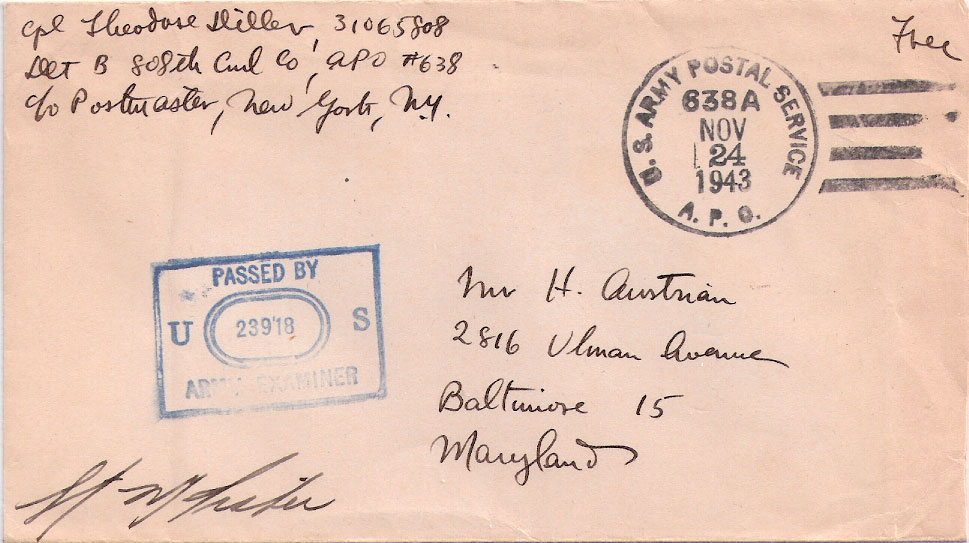 Cpl Theodore Diller, 31065808
Det B 808th Cml Co, APO #638
c/o Postmaster, New York, N.Y.
Free
U.S. ARMY POSTAL SERVICE
638A
NOV
24
1943
A. P. O.
PASSED BY
U 23918 S
ARMY EXAMINER
Mr H. Austrian
2816 Ulman Avenue
Baltimore 15
Maryland
Lt